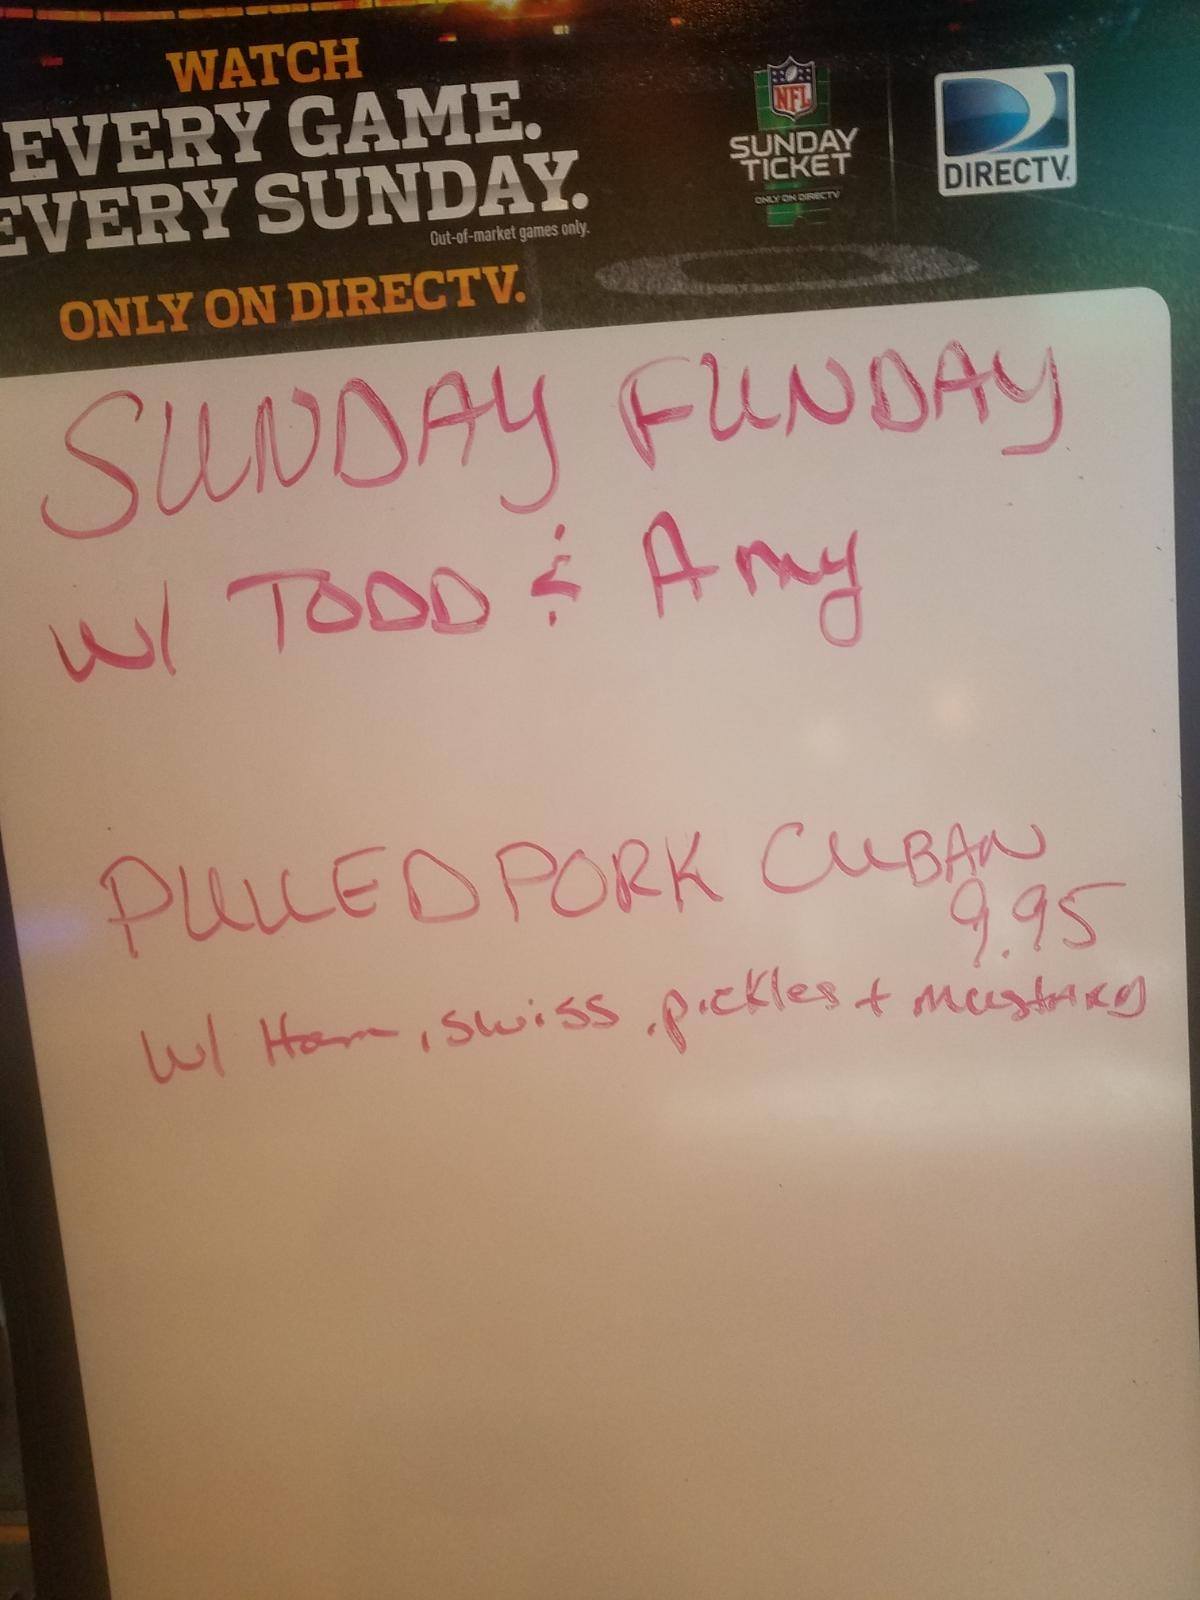 WATCH
EVERY GAME.
EVERY SUNDAY.
Out-of-market games only.
ONLY ON DIRECTV.
NFL
SUNDAY
TICKET
ONLY ON DIRECTV
DIRECTV
SUNDAY FUNDAY
W/ TODD & Amy
PULLED PORK CUBAN
9.95
W/ Ham, swiss, pickles + mustard